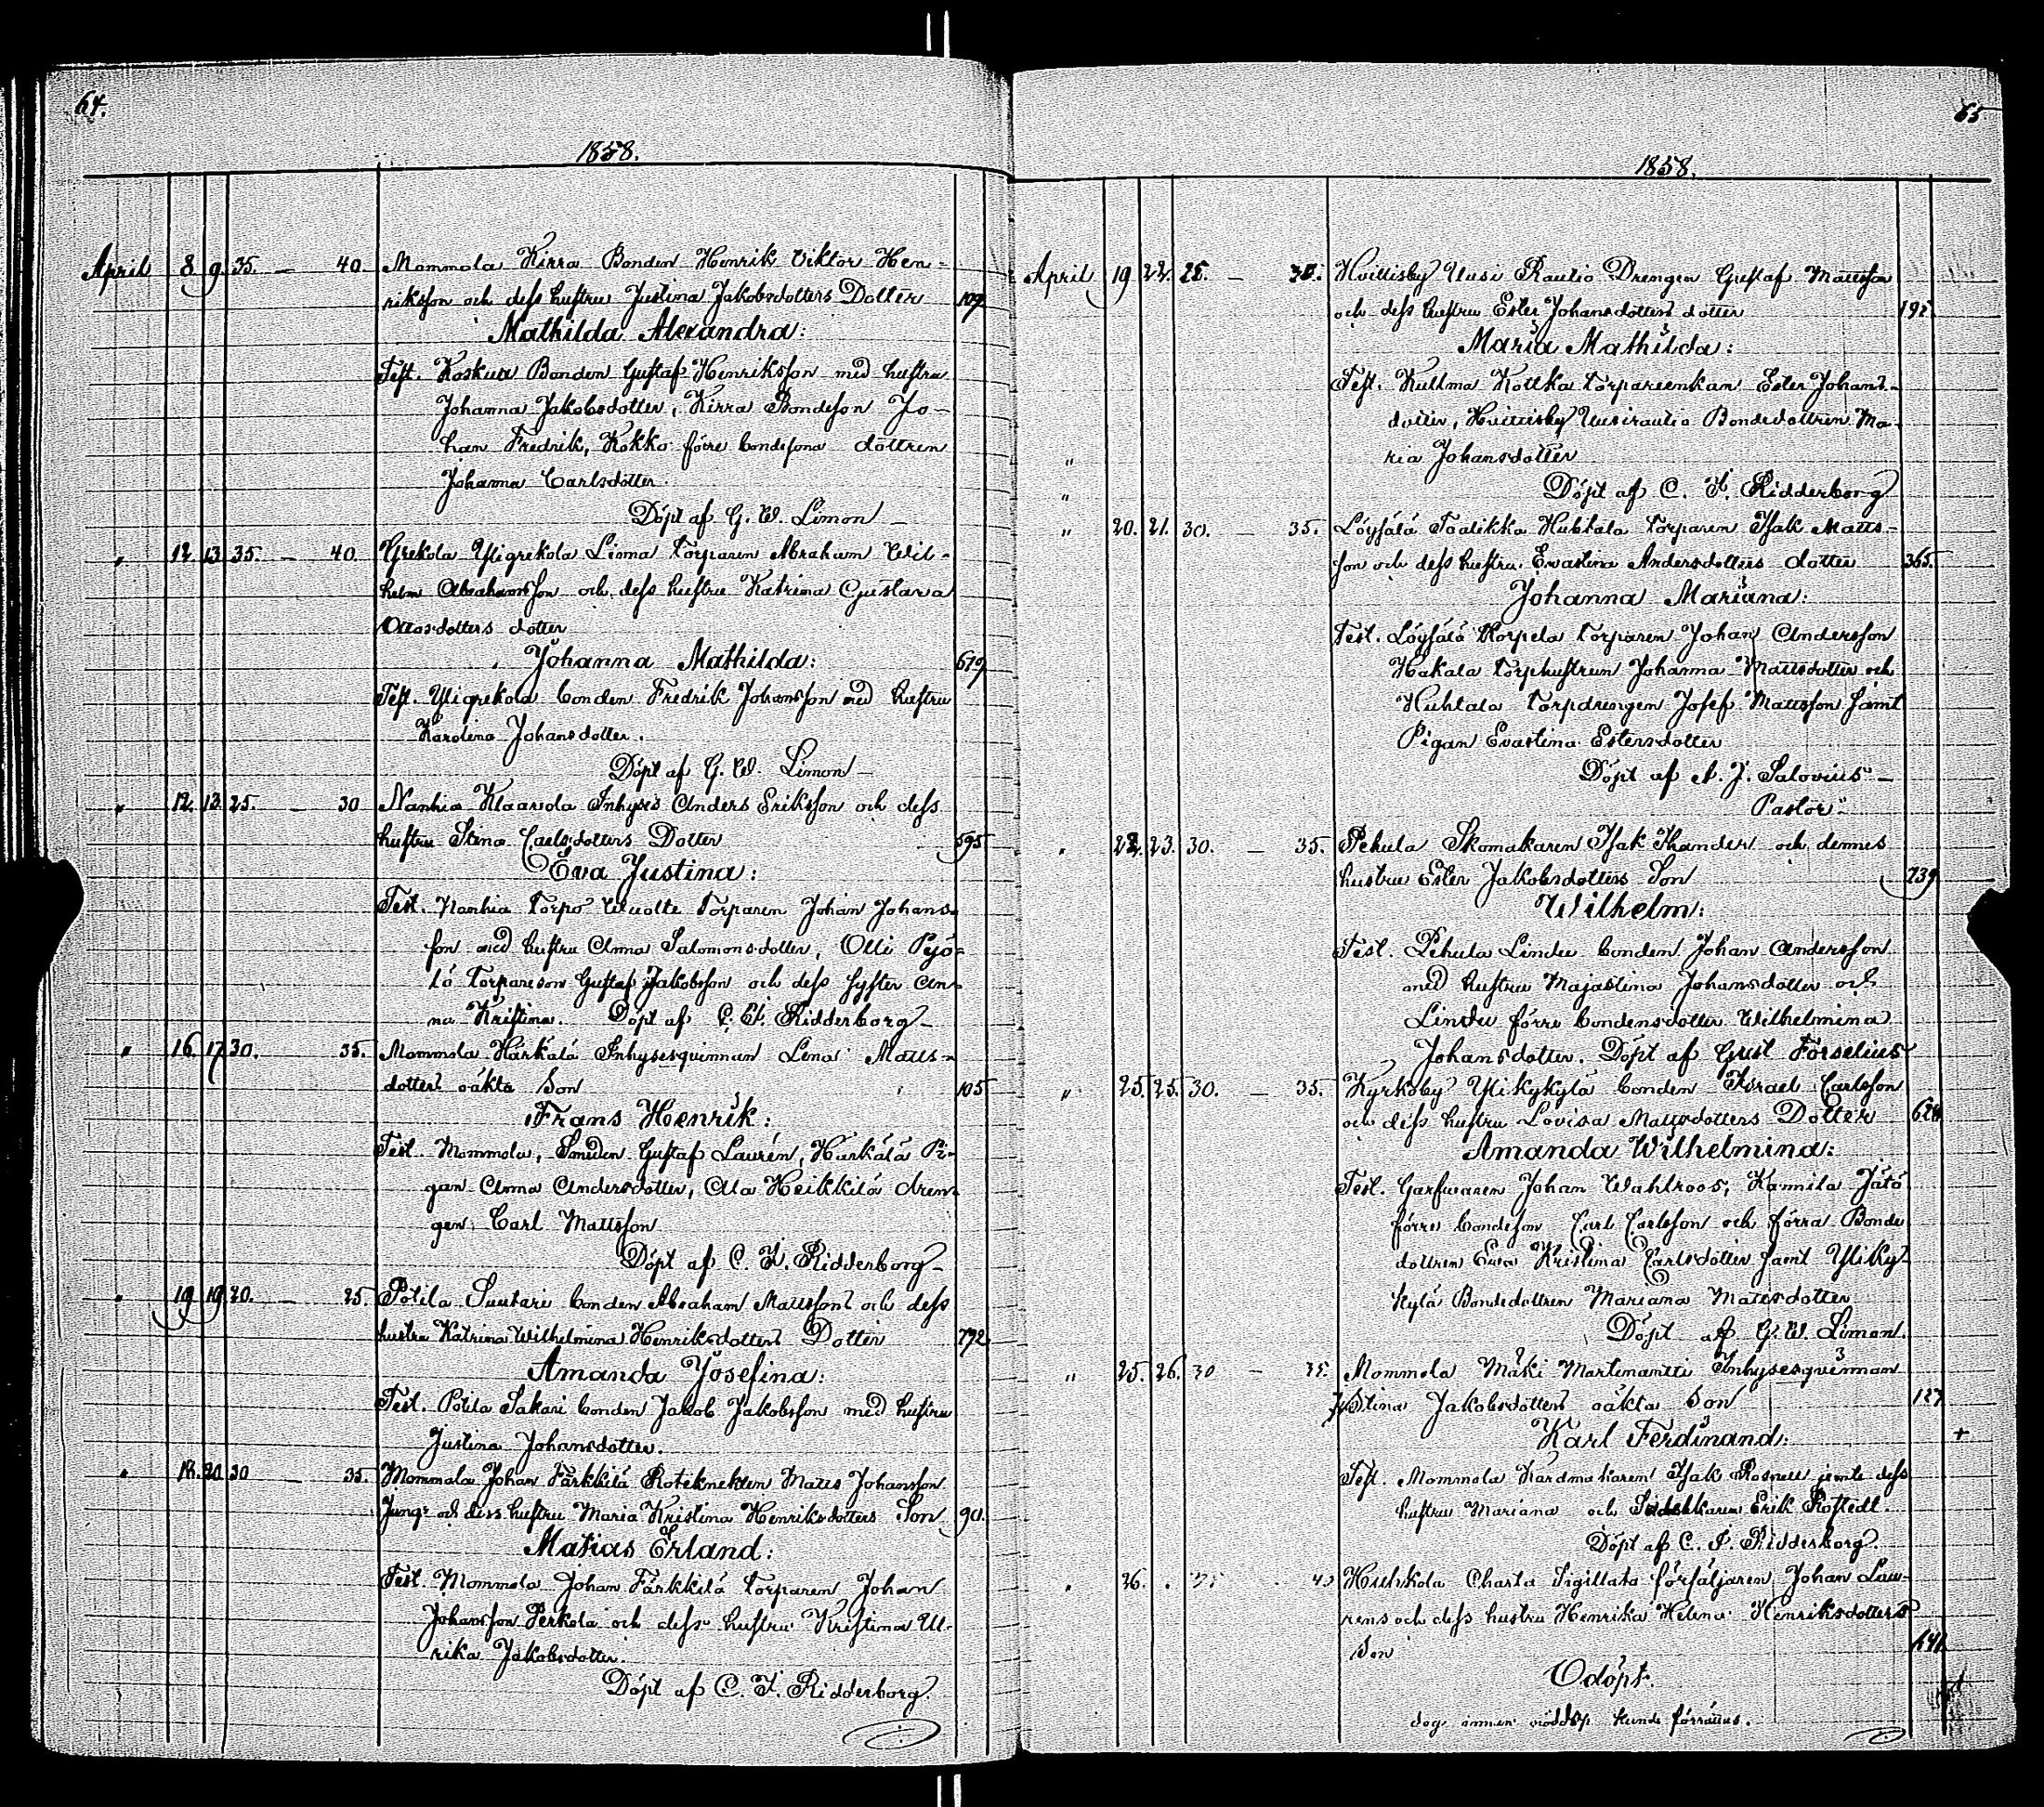 64.
1858.
April 8 9 35. — 40. Mommola Kirra Bonden Henrik Viktor Hen-
riksson och dess hustru Justina Jakobsdotters Dotter 109
Mathilda Alexandra:
Test. Koskua Bonden Gustaf Henriksson med hustru
Johanna Jakobsdotter, Kirra Bondeson Jo-
han Fredrik, Kokko förre bondesons dottren
Johanna Carlsdotter.
Döpt af G. W. Limon —
" 12. 13. 35. — 40. Grekola Yligrekola Lioma Torparen Abraham Wil-
helm Abrahamsson och dess hustru Katrina Gustava
Ottosdotters dotter
Johanna Mathilda: 679
Test. Yligrekola bonden Fredrik Johansson med hustru
Karolina Johansdotter.
Döpt af G. W. Limon —
" 12. 13. 25. — 30 Nanhia Klaavola Inhyses Anders Eriksson och dess
hustru Stina Carlsdotters Dotter 595
Eva Justina:
Test. Nanhia Torpo Wuolte Torparen Johan Johans-
son med hustru Anna Salomonsdotter, Olli Pyö-
lö Torpareson Gustaf Jakobsson och dess syster An-
na Kristina. Döpt af C. F. Ridderborg —
" 16. 17 30. 35. Mommola Härkälä Inhysesqvinnan Lena Matts-
dotters oäkta Son 105
Frans Henrik:
Test. Mommola, Smeden Gustaf Laurén, Härkälä Pi-
gan Anna Andersdotter, Ala Heikkilä dren-
gen Carl Mattsson
Döpt af C. F. Ridderborg —
" 19 19 20. — 25. Pötila Suutari bonden Abraham Mattssons och dess
hustru Katrina Wilhelmina Henriksdotters Dotter 792
Amanda Josefina:
Test. Pötila Sakari bonden Jakob Jakobsson med hustru
Justina Johansdotter.
" 18. 20. 30 — 35. Mommola Johan Färkkilä Roteknekten Matts Johansson
Jung: och dess hustru Maria Kristina Henriksdotters Son 90.
Matias Erland:
Test. Mommola Johan Färkkilä Torparen Johan
Johansson Perkola och dess hustru Kristina Ul-
rika Jakobsdotter.
Döpt af C. F. Ridderborg.
65
1858.
April 19 22. 25. — 30. Hvittisby Uusi Rautio Drengen Gustaf Mattsson
och dess hustru Ester Johansdotters dotter 192
Maria Mathilda:
Test. Kullma Kottka Torpareenkan Ester Johans-
dotter, Hvittisby Uusirautio Bondedottren Ma-
" ria Johansdotter
" Döpt af C. F. Ridderborg
" 20. 21. 30. — 35. Löysälä Taalikka Huhtala Torparen Isak Matts-
son och dess hustru Evastina Andersdotters dotter 365.
Johanna Mariana:
Test. Löysälä Korpela Torparen Johan Andersson
Hakala Torphustrun Johanna Mattsdotter och
Huhtala Torpdrengen Josef Mattsson samt
Pigan Evastina Estersdotter
Döpt af A. J. Salovius —
Pastor
" 22. 23. 30. — 35. Pehula Skomakaren Isak Thander och dennes
hustru Ester Jakobsdotters Son 739
Wilhelm:
Test. Pehula Lindu bonden Johan Andersson
med hustru Majastina Johansdotter och
Lindu förre bondensdotter Wilhelmina
Johansdotter. Döpt af Gust Forselius
" 25. 25. 30. — 35. Kyrkoby Ylikykylä bonden Israel Carlsson
och dess hustru Lovisa Mattsdotters Dotter 628
Amanda Wilhelmina:
Test. Garfvaren Johan Wahlroos, Kamila Jätö
förre bondeson Carl Carlsson och förra Bonde
dottren Eva Kristina Carlsdotter samt Yliky-
kylä Bondedottren Mariana Mattsdotter
Döpt af G. W. Limon.
" 25. 26. 30 — 35. Mommola Mäki Martimantti Inhysesqvinnan
Justina Jakobsdotters oäkta Son 127
Karl Ferdinand: +
Test. Mommola Kardmakaren Isak Rosnell jemte dess
hustru Mariana och Erik Rostedt.
Döpt af C. F. Ridderborg.
" 26. . 35 . 40 Huhkola Charta Sigillata försäljaren Johan Lau-
rens och dess hustru Henrika Helena Henriksdotters
Son 641
Odöpt.
dog innan nöddop kunde förrättas.